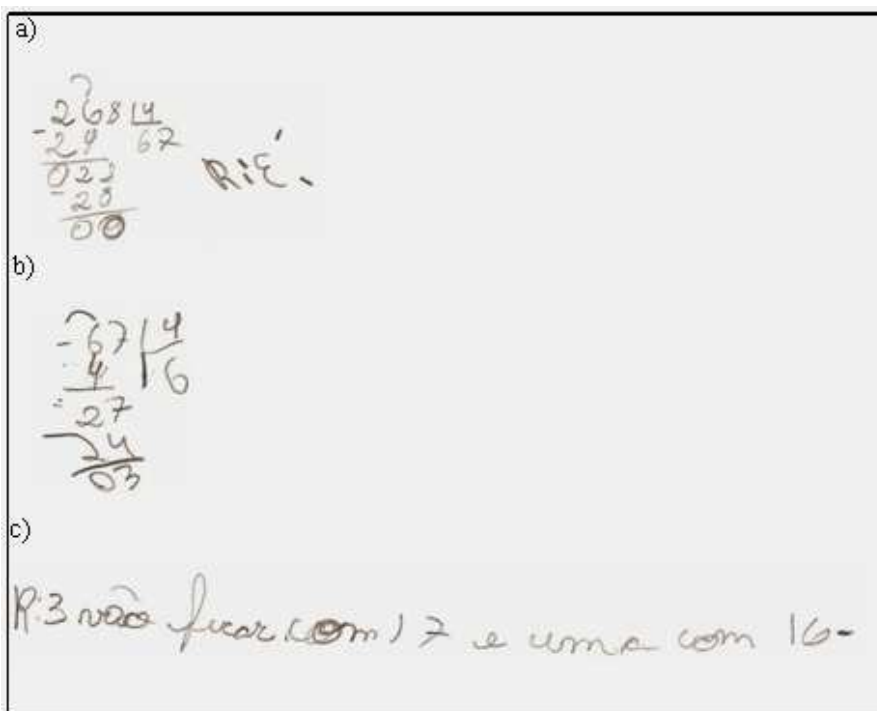 a)
- 268 | 4
- 24 67
022
- 28 R: É.
00
b)
- 67 | 4
4 6
= 27
24
03
c)
R: 3 vão ficar com 17 e uma com 16-